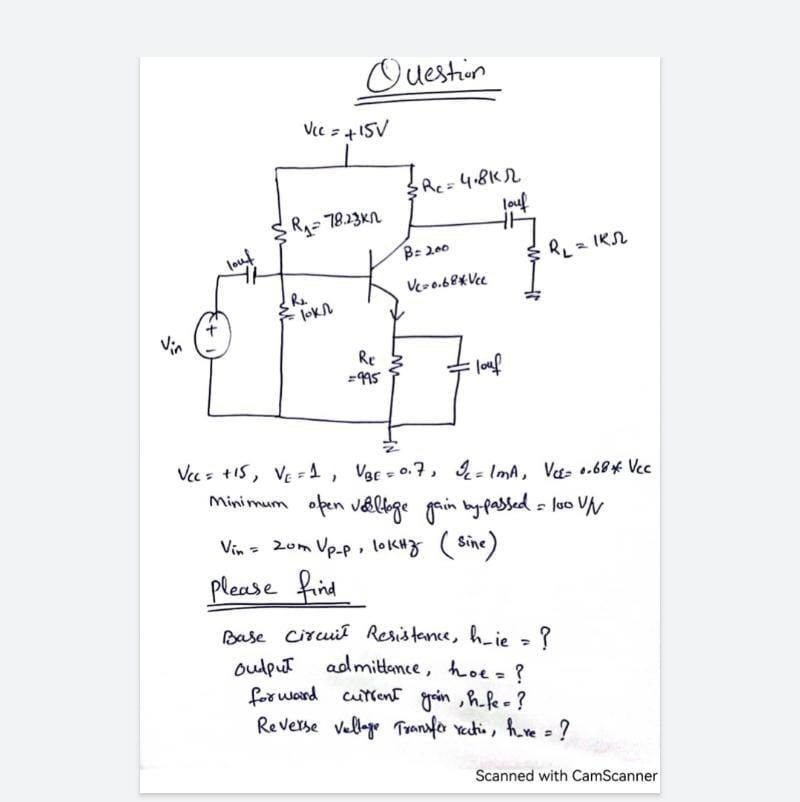 Question
Vcc = +15V
Rc = 4.8KΩ
10uf
R1 = 78.23KΩ
B = 200
RL = 1KΩ
10uf
Vc = 0.68*Vcc
R2
= 10KΩ
Vin
+
-
RE
= 995
10uf
Vcc = +15, VE = 1, VBE = 0.7, Ic = 1mA, = 0.68* Vcc
Minimum open voltage gain by-passed = 100 V/V
Vin = 20m Vp-p, 10KHz (sine)
Please find
Base circuit Resistance, h-ie = ?
output admittance, hoe = ?
forward current gain, h-fe = ?
Reverse voltage Transfer ratio, h-re = ?
Scanned with CamScanner